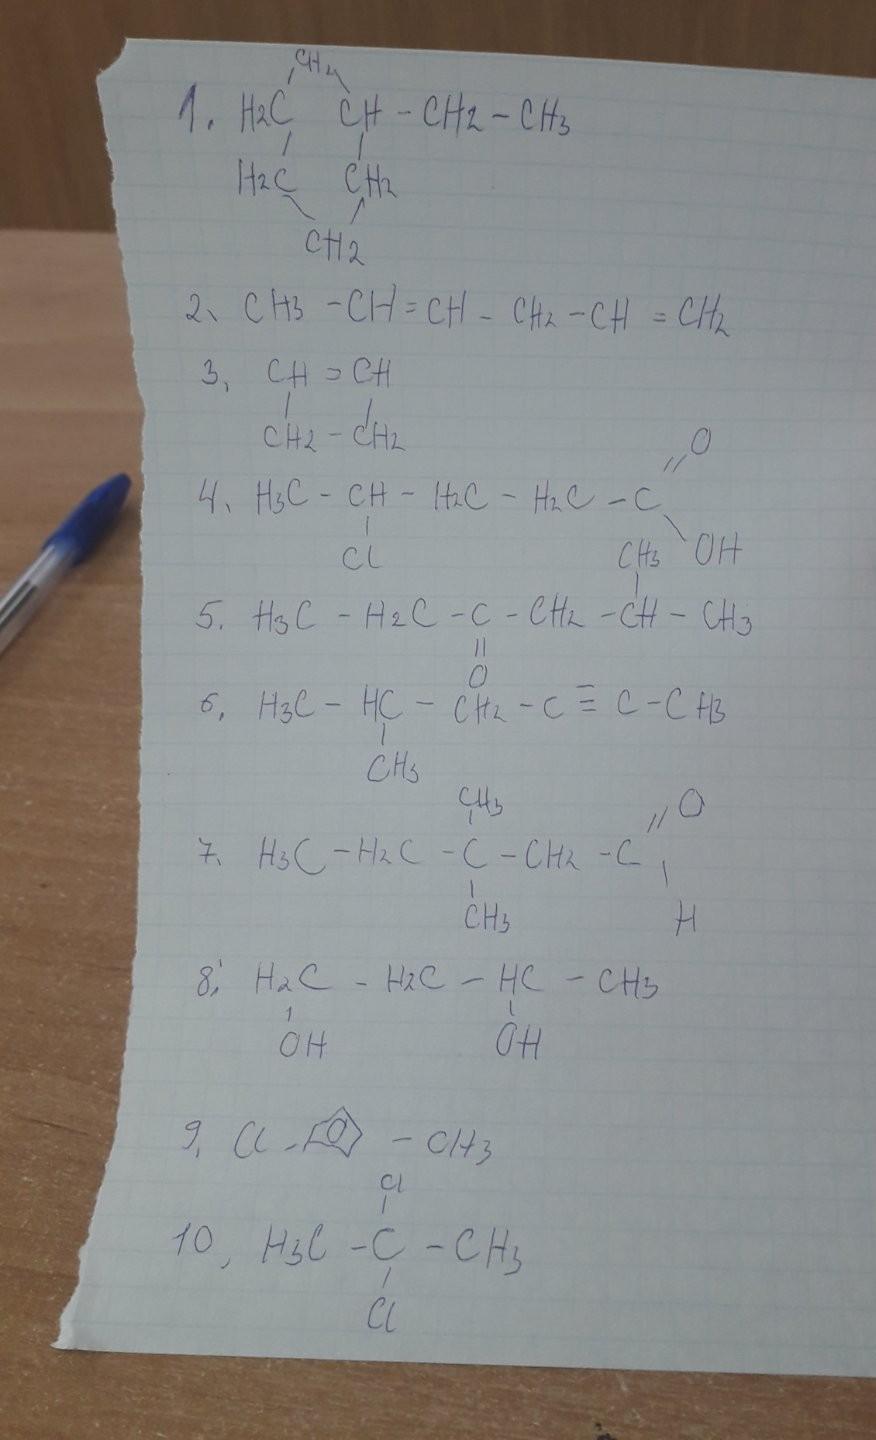 CH2
1. H2C CH - CH2 - CH3
H2C CH2
CH2
2. CH3 - CH = CH - CH2 - CH = CH2
3. CH = CH
CH2 - CH2
O
4. H3C - CH - H2C - H2C - C
Cl OH
CH3
5. H3C - H2C - C - CH2 - CH - CH3
O
6. H3C - HC - CH2 - C ≡ C - CH3
CH3
CH3 O
7. H3C - H2C - C - CH2 - C
CH3 H
8. H2C - H2C - HC - CH3
OH OH
9. Cl - - CH3
Cl
10. H3C - C - CH3
Cl